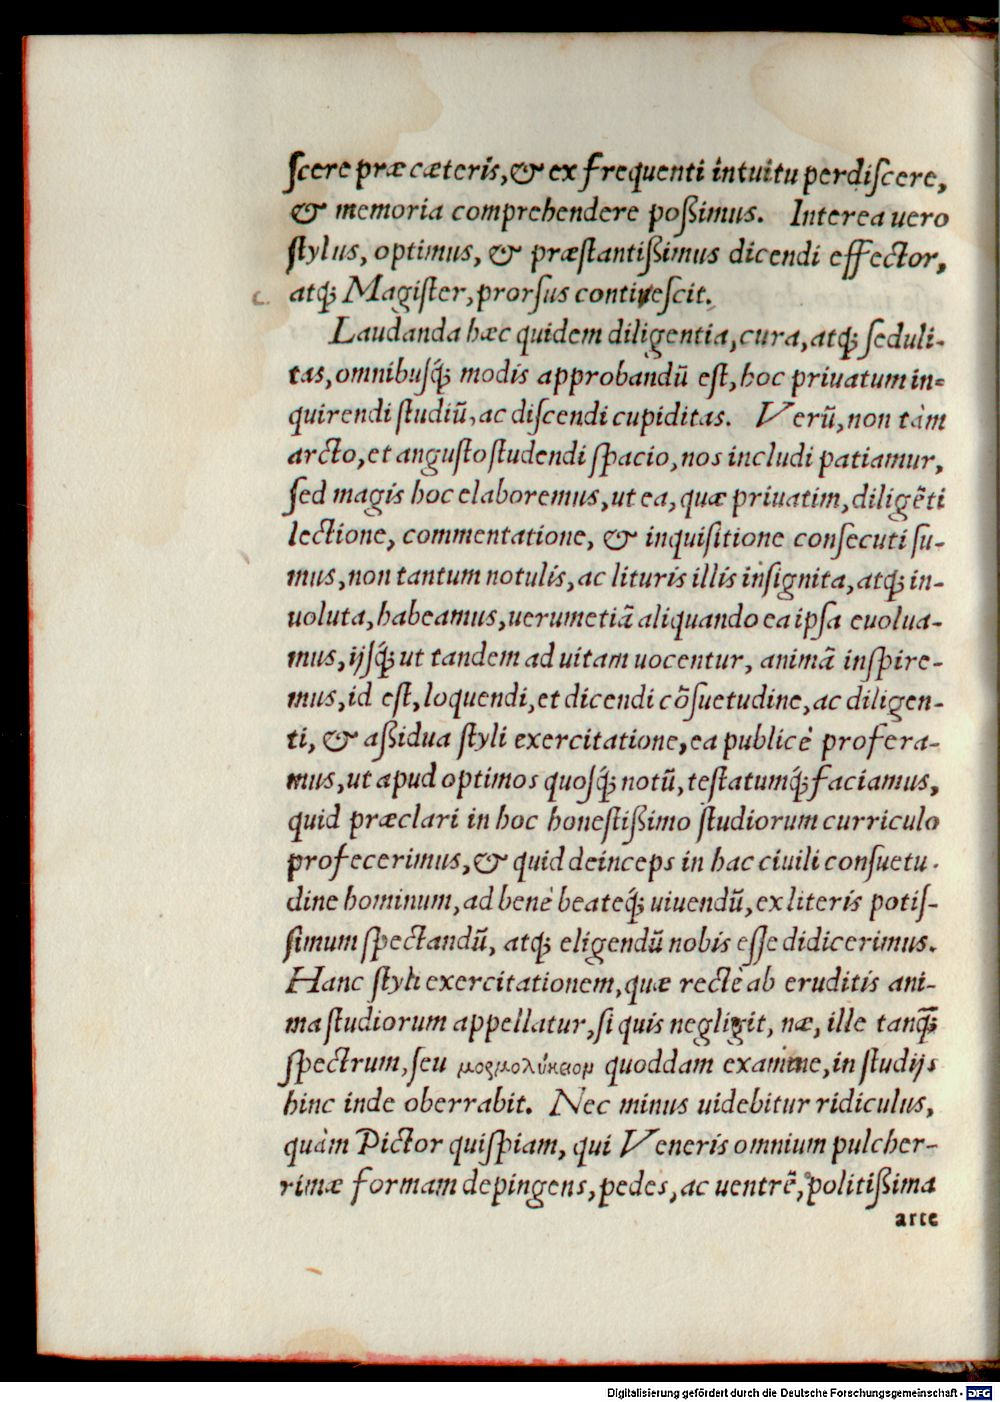 ſcere præ cæteris, & ex frequenti intuitu perdiſcere,
& memoria comprehendere poßimus. Interea uero
ſtylus, optimus, & præſtantißimus dicendi effector,
atq; Magiſter, prorſus contiveſcit.
c.
Laudanda hæc quidem diligentia, cura, atq; ſeduli-
tas, omnibusq́; modis approbandū eſt, hoc priuatum in=
quirendi ſtudiū, ac diſcendi cupiditas. Verū, non tàm
arcto, et anguſto ſtudendi ſpacio, nos includi patiamur,
ſed magis hoc elaboremus, ut ea, quæ priuatim, diligēti
lectione, commentatione, & inquiſitione conſecuti ſu-
mus, non tantum notulis, ac lituris illis inſignita, atq; in-
uoluta, habeamus, uerumetiã aliquando ea ipſa euolua-
mus, ijſq́; ut tandem ad uitam uocentur, animã inſpire-
mus, id eſt, loquendi, et dicendi cõſuetudine, ac diligen-
ti, & aßidua ſtyli exercitatione, ea publicè profera-
mus, ut apud optimos quoſq́; notū, teſtatumq́; faciamus,
quid præclari in hoc honeſtißimo ſtudiorum curriculo
profecerimus, & quid deinceps in hac ciuili conſuetu-
dine hominum, ad benè beateq́; uiuendū, ex literis potiſ-
ſimum ſpectandū, atq; eligendū nobis eſſe didicerimus.
Hanc ſtyli exercitationem, quæ rectè ab eruditis ani-
ma ſtudiorum appellatur, ſi quis negligit, næ, ille tanq̃;
ſpectrum, ſeu μορμολύκειον quoddam examine, in ſtudijs
hinc inde oberrabit. Nec minus uidebitur ridiculus,
quàm Pictor quiſpiam, qui Veneris omnium pulcher-
rimæ formam depingens, pedes, ac uentrē, politißima
arte
Digitalisierung gefördert durch die Deutsche Forschungsgemeinschaft - DFG